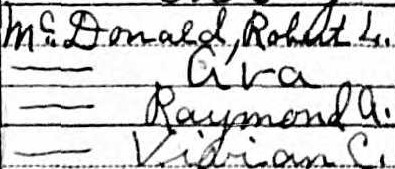 McDonald, Robert L.
— Ava
— Raymond A.
— Vivian C.